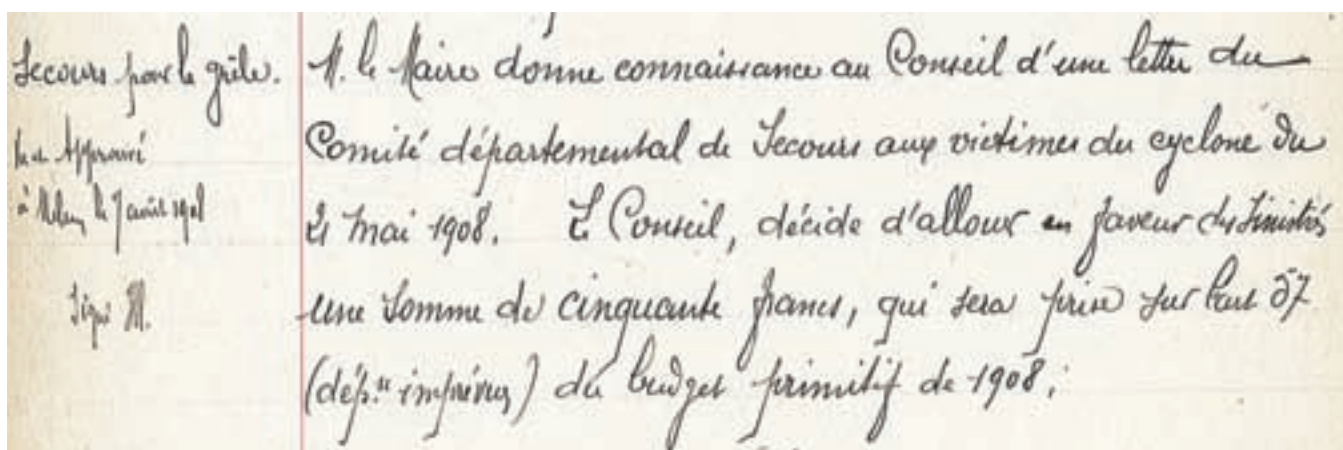 Secours pour la grêle.
Vu et Approuvé
à Melun, le 7 août 1908
Signé
M. le Maire donne connaissance au Conseil d'une lettre du
Comité départemental de Secours aux victimes du cyclone du
21 mai 1908. Le Conseil, décide d'allouer en faveur des Sinistrés
une Somme de cinquante francs, qui sera prise sur l'art 57
(dép.es imprévues) du budget primitif de 1908;